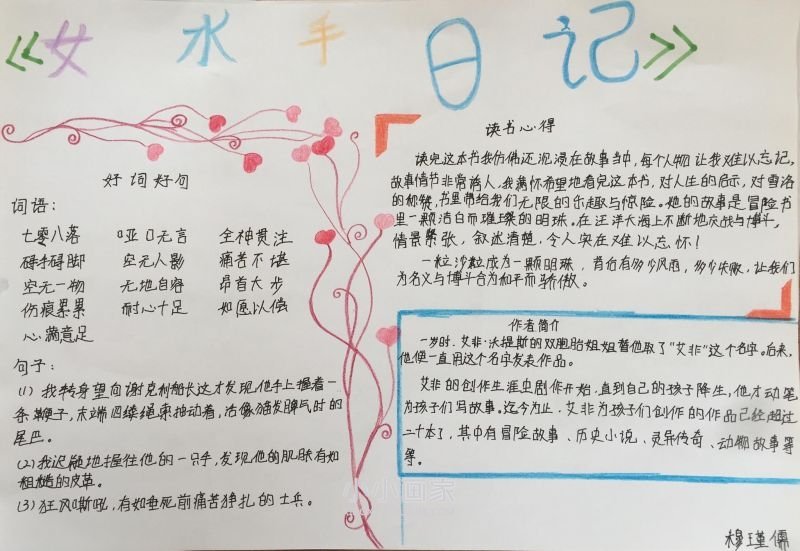 《女水手日记》
好词好句
词语：
七零八落 哑口无言 全神贯注
碍手碍脚 空无人影 痛苦不堪
空无一物 无地自容 昂首大步
伤痕累累 耐心十足 如愿以偿
心满意足
句子：
(1) 我转身望向谢克利船长这才发现他手上握着一
条鞭子，末端四缕绳束抽动着，活像猫发脾气时的
尾巴。
(2) 我迟疑地握住他的一只手，发现他的肌肤有如
粗糙的皮革。
(3) 狂风嘶吼，有如垂死前痛苦挣扎的士兵。
读书心得
读完这本书我仿佛还沉浸在故事当中，每个人物让我难以忘记，
故事情节非常诱人，我满怀希望地看完这本书，对人生的启示，对雪洛
的称赞，书里带给我们无限的乐趣与惊险。她的故事是冒险书
里一颗洁白而璀璨的明珠。在汪洋大海上不断地交战与博斗，
情景紧张，叙述清楚，令人实在难以忘怀！
一粒沙粒成为一颗明珠，背后有多少风雨，多少失败，让我们
为名义与博斗合为和平而骄傲。
作者简介
一岁时，艾非·沃提斯的双胞胎姐姐替他取了“艾非”这个名字。后来，
他便一直用这个名字发表作品。
艾非的创作生涯由剧作开始，直到自己的孩子降生，他才动笔
为孩子们写故事。迄今为止，艾非为孩子们创作的作品已经超过
二十本了，其中有冒险故事、历史小说、灵异传奇、动物故事等
等。
小小画家
穆瑾儒